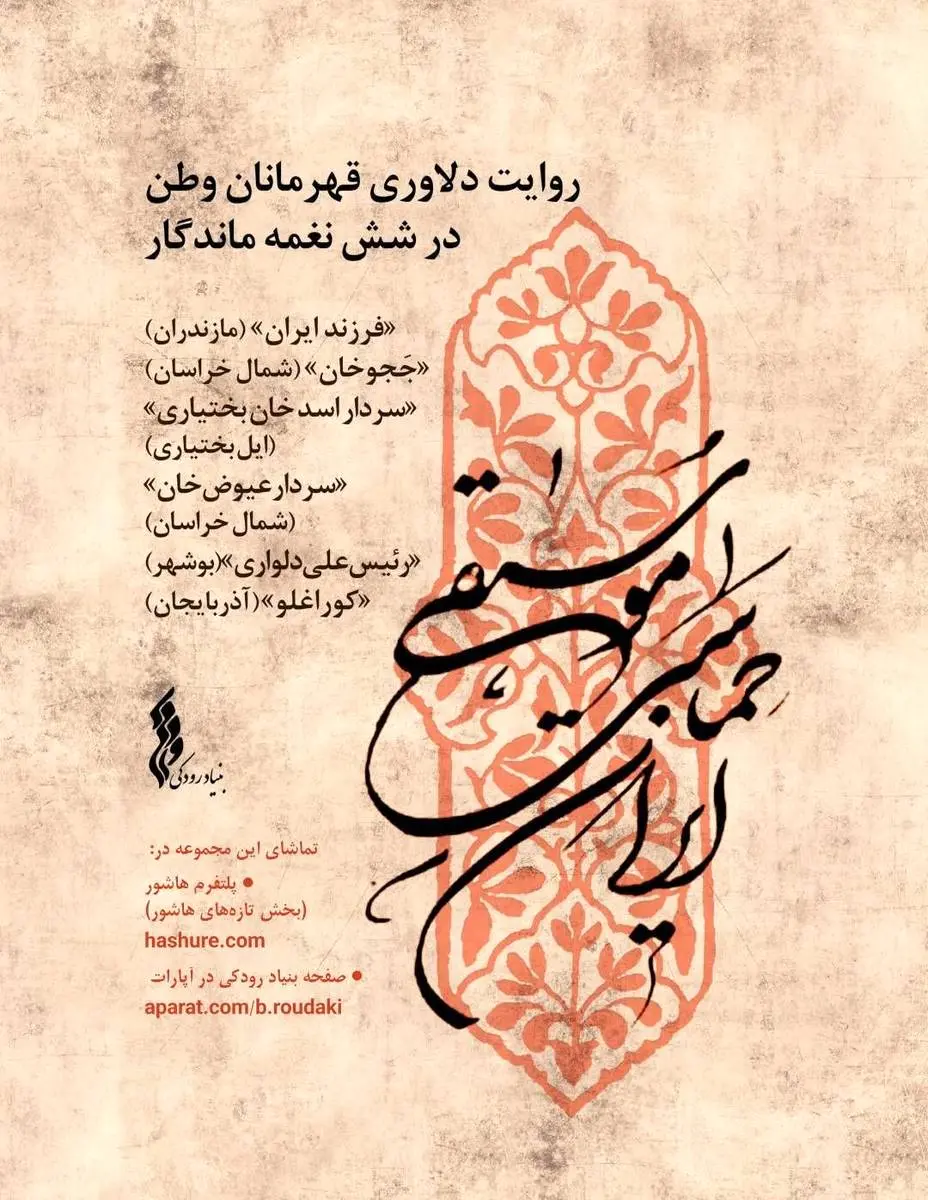 روایت دلاوری قهرمانان وطن
در شش نغمه ماندگار
«فرزند ایران» (مازندران)
«جَجوخان» (شمال خراسان)
«سردار اسد خان بختیاری»
(ایل بختیاری)
«سردار عیوض‌خان»
(شمال خراسان)
«رئیس‌علی دلواری» (بوشهر)
«کوراغلو» (آذربایجان)
موسیقی
حماسی
ایران
بنیاد رودکی
تماشای این مجموعه در:
● پلتفرم هاشور
(بخش تازه‌های هاشور)
hashure.com
● صفحه بنیاد رودکی در آپارات
aparat.com/b.roudaki